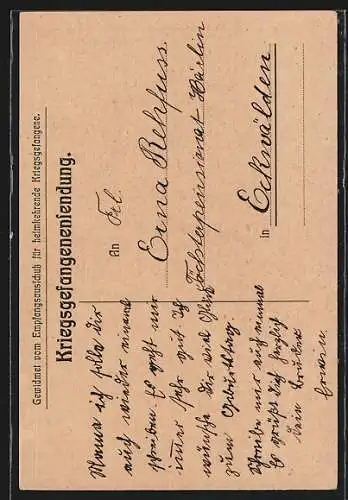 Gewidmet vom Empfangsausschuß für heimkehrende Kriegsgefangene.
Kriegsgefangenensendung.
An Frl.
Erna Rehfuss.
Töchterpensionat Härlin
in Eckwälden
Mama ich solle dir
auch wieder einmal
schreiben. Es geht mir
immer sehr gut. Ich
wünsche dir viel Glück
zum Geburtstag.
Schreibe mir auch einmal
Es grüßt dich herzlich
dein Bruder
Erwin.